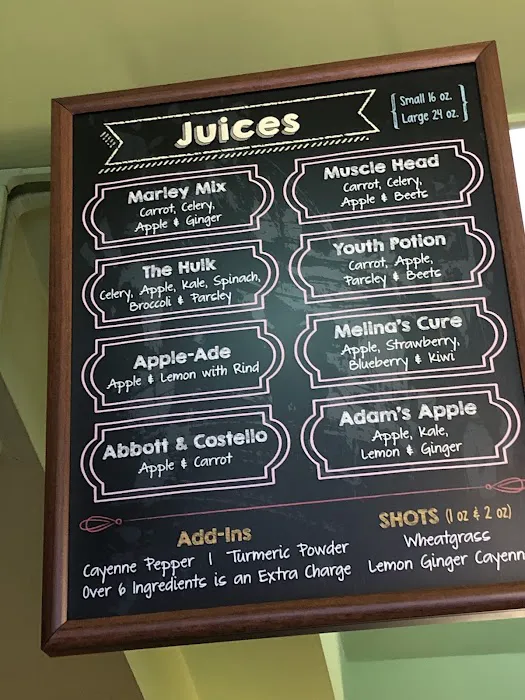 Juices
Small 16 oz.
Large 24 oz.
Marley Mix
Carrot, Celery,
Apple & Ginger
Muscle Head
Carrot, Celery,
Apple & Beets
The Hulk
Celery, Apple, Kale, Spinach,
Broccoli & Parsley
Youth Potion
Carrot, Apple,
Parsley & Beets
Apple-Ade
Apple & Lemon with Rind
Melina's Cure
Apple, Strawberry,
Blueberry & Kiwi
Abbott & Costello
Apple & Carrot
Adam's Apple
Apple, Kale,
Lemon & Ginger
Add-Ins
Cayenne Pepper | Turmeric Powder
Over 6 Ingredients is an Extra Charge
SHOTS (1 oz & 2 oz)
Wheatgrass
Lemon Ginger Cayenn